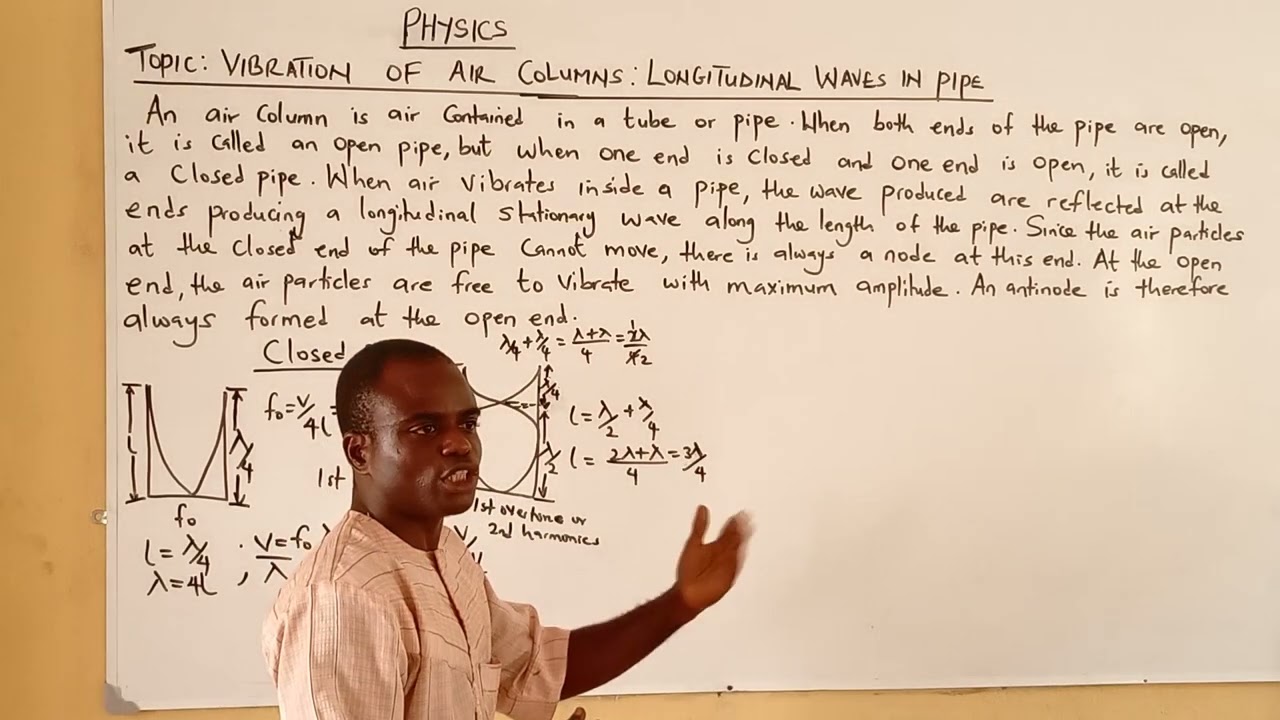 PHYSICS
TOPIC: VIBRATION OF AIR COLUMNS: LONGITUDINAL WAVES IN PIPE
An air column is air contained in a tube or pipe. When both ends of the pipe are open,
it is called an open pipe, but when one end is closed and one end is open, it is called
a closed pipe. When air vibrates inside a pipe, the wave produced are reflected at the
ends producing a longitudinal stationary wave along the length of the pipe. Since the air particles
at the closed end of the pipe cannot move, there is always a node at this end. At the open
end, the air particles are free to vibrate with maximum amplitude. An antinode is therefore
always formed at the open end.
λ/4 + λ/4 = λ+λ/4 = 2λ/4 2
Closed
l
λ/4
f₀ = v/4l =
λ/4
l = λ/2 + λ/4
λ/2
l = 2λ+λ/4 = 3λ/4
1st
f₀
1st overtone or
2nd harmonics
l = λ/4
; v = f₀
λ = 4l
λ